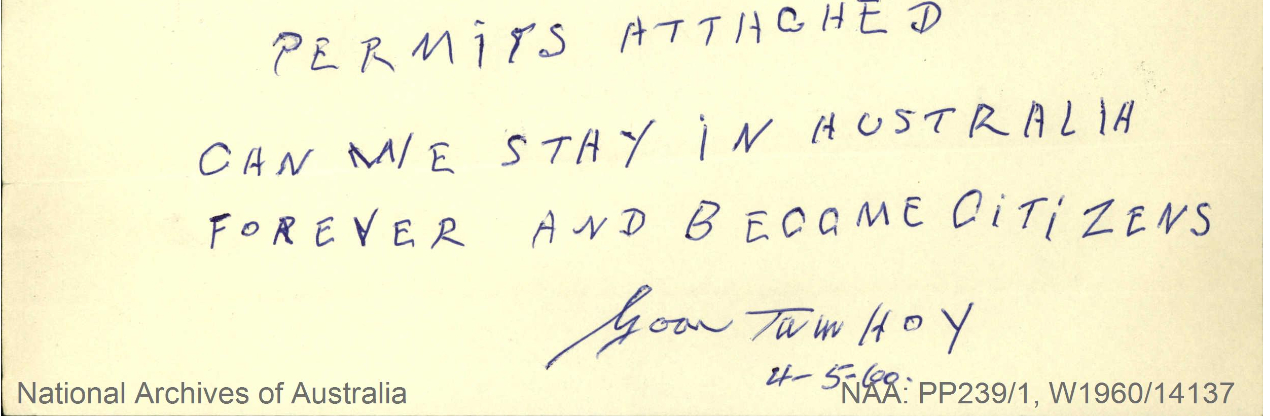 PERMITS ATTACHED
CAN WE STAY IN AUSTRALIA
FOREVER AND BECOME CITIZENS
Goon Tam HOY
4-5-60.
National Archives of Australia
NAA: PP239/1, W1960/14137